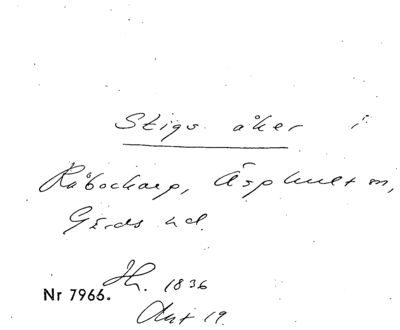 Stigs åker i
Råbocharp, Äsphult sn,
Gärds hd.
Nr 7966. Jh. 1836
Akt 19.